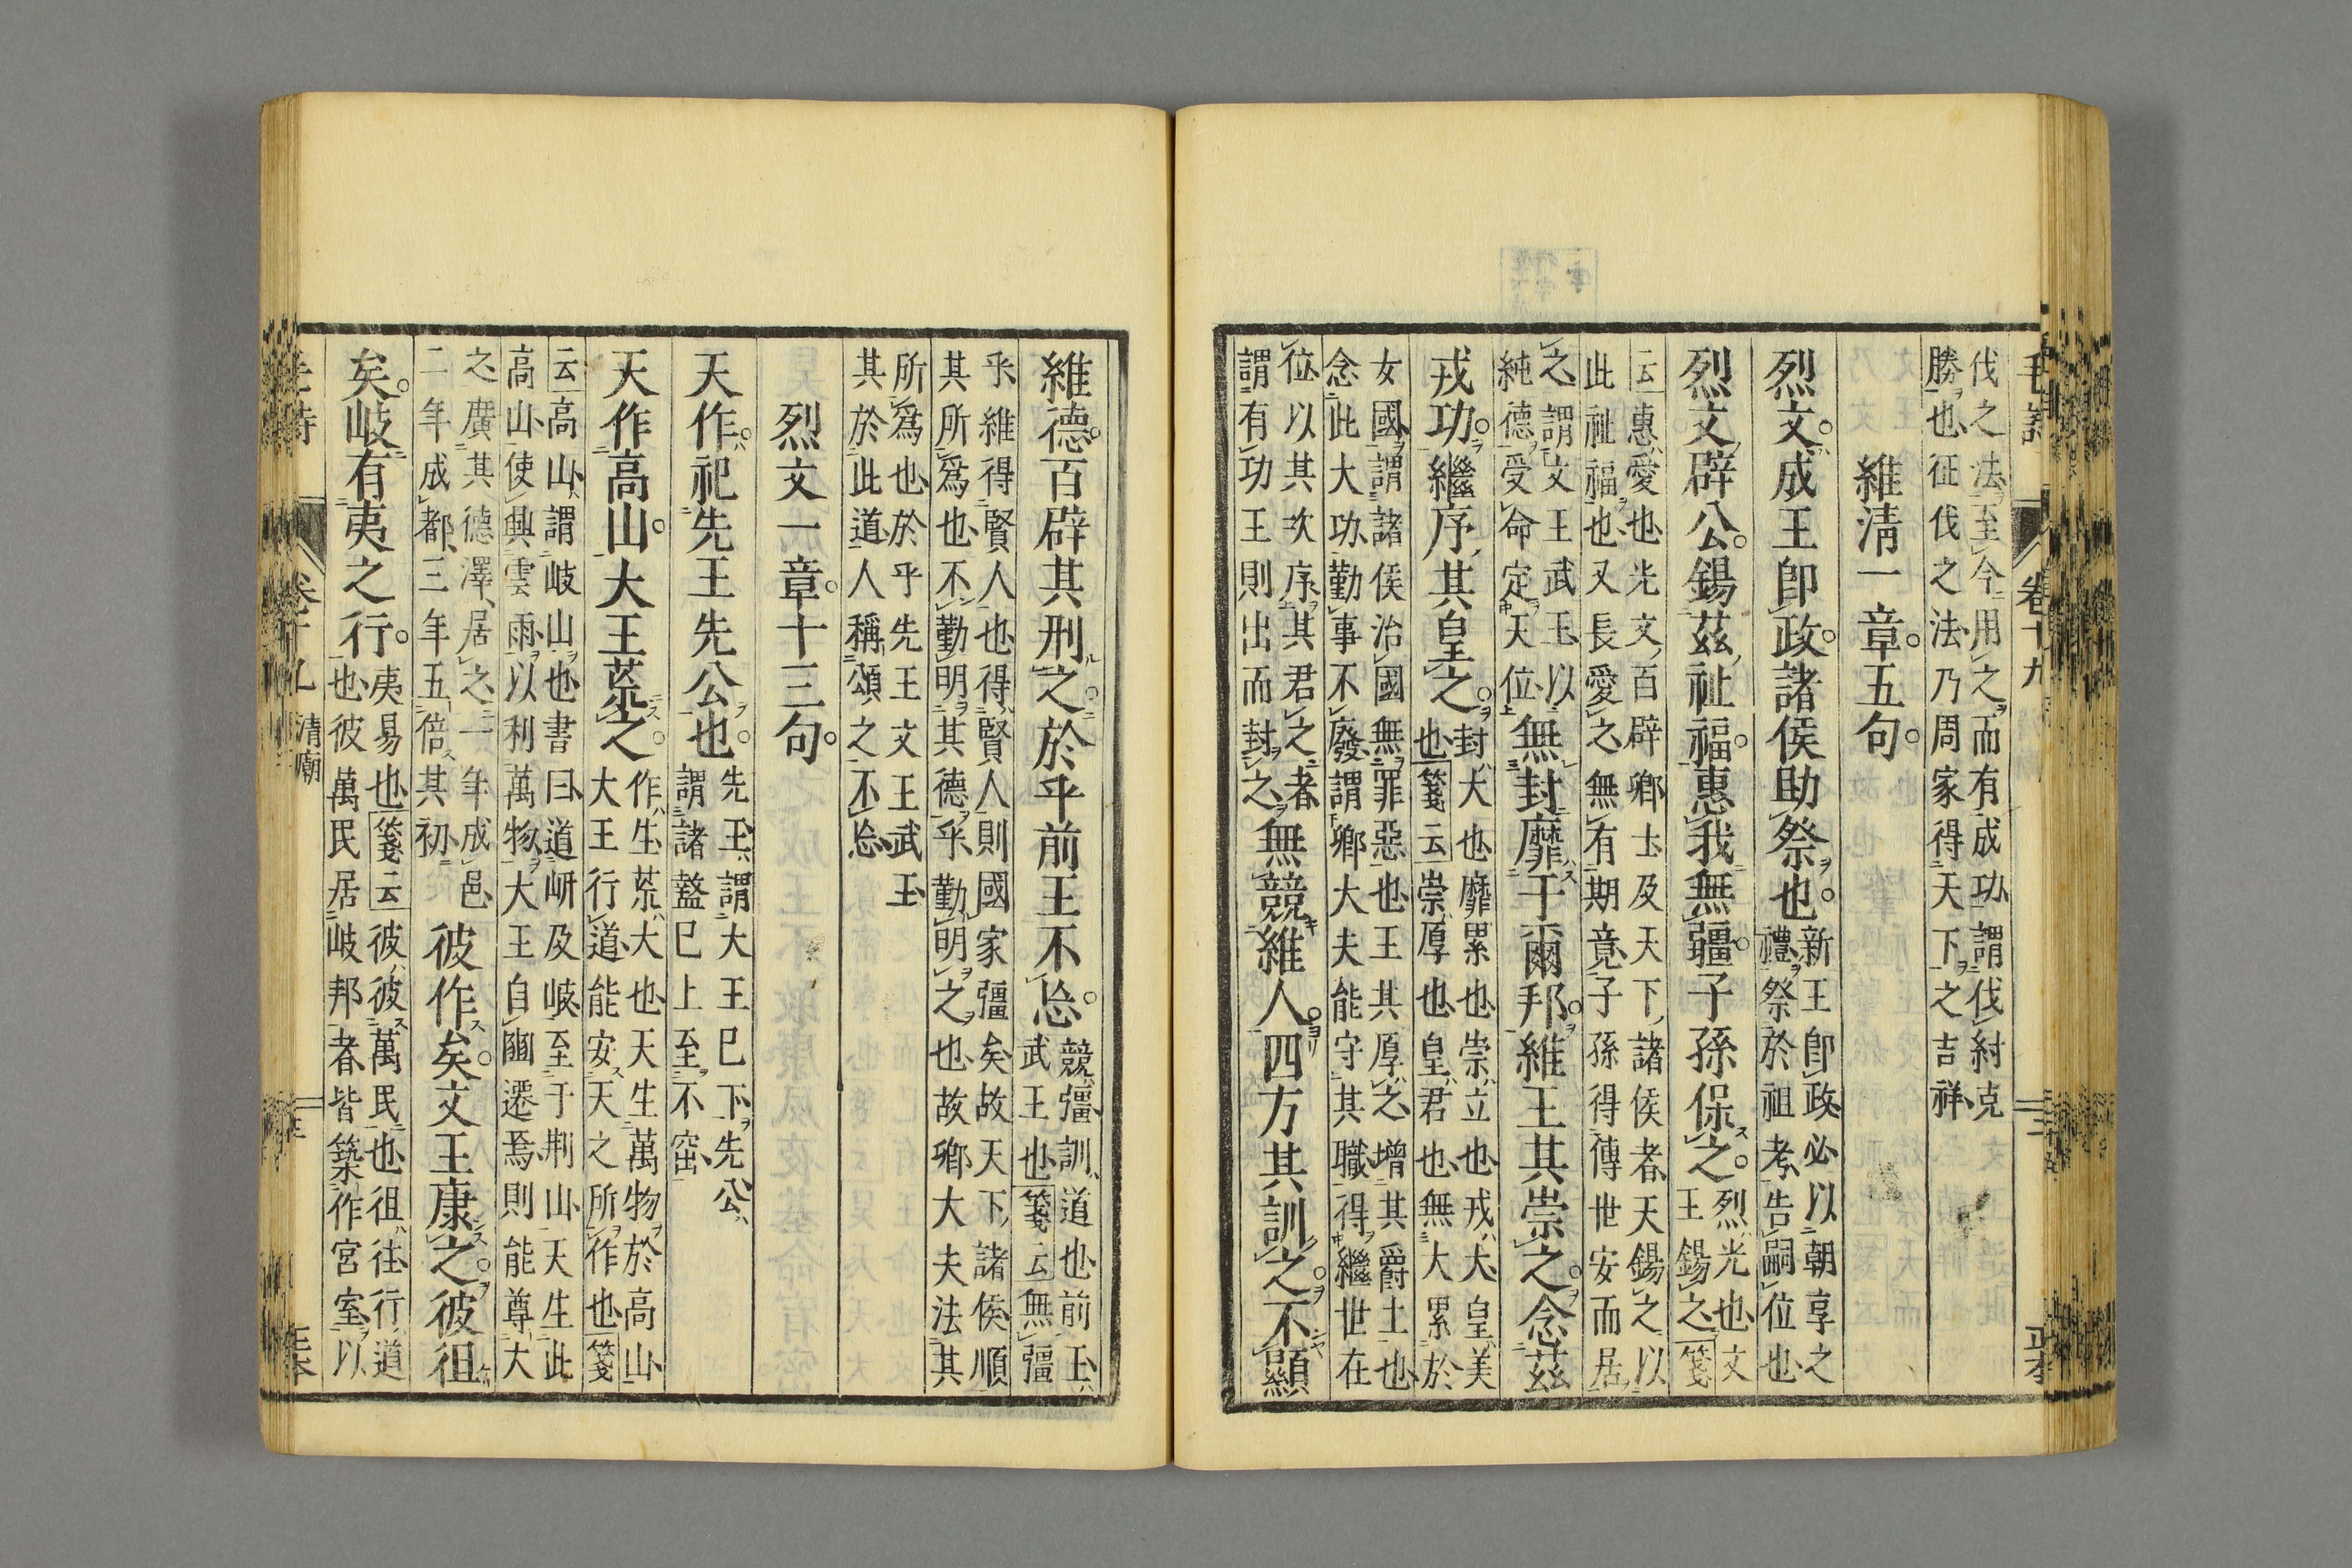 毛詩 卷十九
伐之法至今用之而有成功謂伐紂克
勝也征伐之法乃周家得天下之吉祥
維清一章五句
烈文成王卽政諸侯助祭也新王卽政必以朝享之
禮祭於祖考告嗣位也
烈文辟公錫茲祉福惠我無疆子孫保之烈光也文
王錫之箋
云惠愛也光文百辟卿士及天下諸侯者天錫之以
此祉福也又長愛之無有期竟子孫得傳世安而居
之謂文王武王以
純德受命定天位無封靡于爾邦維王其崇之念茲
戎功繼序其皇之封大也靡累也崇立也戎大皇美
也箋云崇厚也皇君也無大累於
女國謂諸侯治國無罪惡也王其厚之增其爵土也
念此大功勤事不廢謂卿大夫能守其職得繼世在
位以其次序其君之者
謂有功王則出而封之無競維人四方其訓之不顯
維德百辟其刑之於乎前王不忘競彊訓道也前王
武王也箋云無彊
乎維得賢人也得賢人則國家彊矣故天下諸侯順
其所爲也不勤明其德乎勤明之也故卿大夫法其
所爲也於乎先王文王武王
其於此道人稱頌之不忘
烈文一章十三句
天作祀先王先公也先王謂大王已下先公
謂諸盩已上至不窋
天作高山大王荒之作生荒大也天生萬物於高山
大王行道能安天之所作也箋
云高山謂岐山也書曰道岍及岐至于荆山天生此
高山使興雲雨以利萬物大王自豳遷焉則能尊大
之廣其德澤居之一年成邑
二年成都三年五倍其初彼作矣文王康之彼徂
矣岐有夷之行夷易也箋云彼彼萬民也徂往行道
也彼萬民居岐邦者皆築作宮室以
清廟